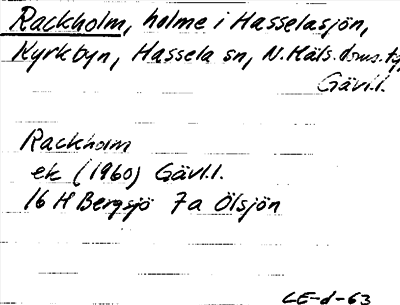 Rackholm, holme i Hasselasjön,
Kyrkbyn, Hassela sn, N. Häls. doms. tg,
Gävl.l.
Rackholm
ek (1960) Gävl.l.
16 H Bergsjö 7a Ölsjön
LE-d-63